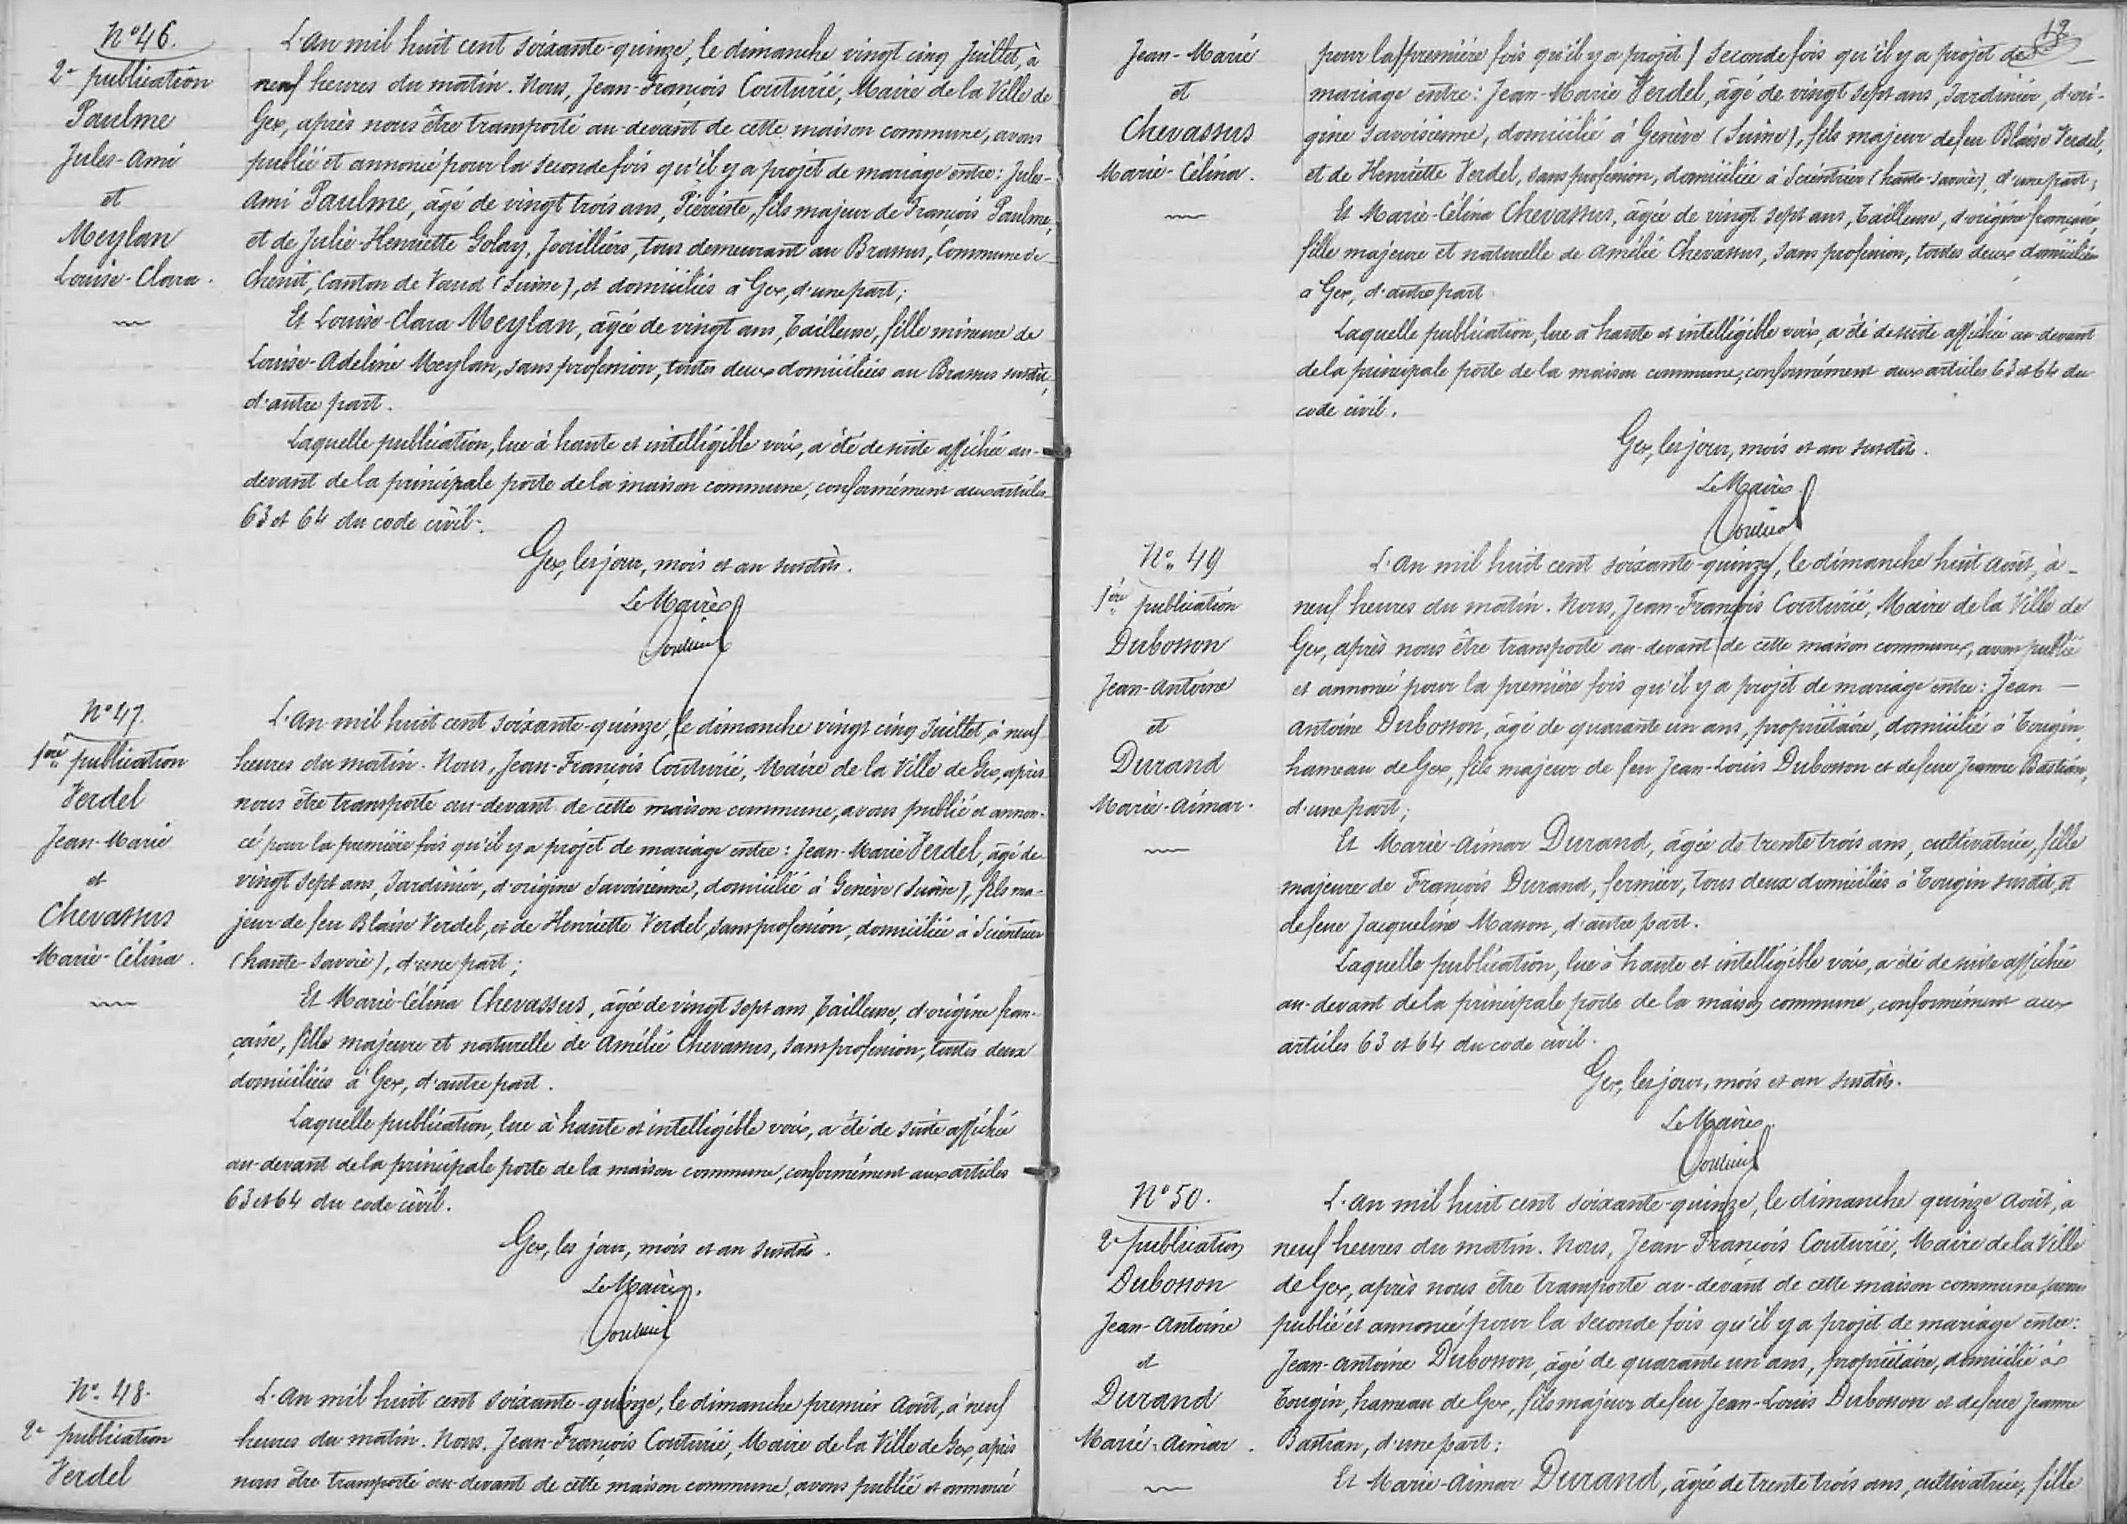 N° 46.
2e publication
Paulme
Jules-Ami
et
Meylan
Louise-Clara.
L'An mil huit cent soixante-quinze, le dimanche vingt cinq Juillet, à
neuf heures du matin. Nous, Jean-François Couturié, Maire de la Ville de
Gex, après nous être transporté au-devant de cette maison commune, avons
publié et annoncé pour la seconde fois qu'il y a projet de mariage entre: Jules-
Ami Paulme, âgé de vingt trois ans, Pierriste, fils majeur de François Paulme,
et de Julie-Henriette Golay, Joailliers, tous demeurant au Brassus, Commune de
Chenit, Canton de Vaud (Suisse), et domiciliés à Gex, d'une part;
Et Louise-Clara Meylan, âgée de vingt ans, Tailleuse, fille mineure de
Louise-Adeline Meylan, sans profession, toutes deux domiciliées au Brassus susdit,
d'autre part.
Laquelle publication, lue à haute et intelligible voix, a été de suite affichée au-
devant de la principale porte de la maison commune, conformément aux articles
63 et 64 du code civil.
Gex, les jour, mois et an susdits.
Le Maire,
Couturié
N° 47.
1ère publication
Verdel
Jean-Marie
et
Chevassus
Marie-Célina.
L'An mil huit cent soixante-quinze, le dimanche vingt cinq Juillet, à neuf
heures du matin. Nous, Jean-François Couturié, Maire de la Ville de Gex, après
nous être transporté au-devant de cette maison commune, avons publié et annon-
cé pour la première fois qu'il y a projet de mariage entre: Jean-Marie Verdel, âgé de
vingt sept ans, Jardinier, d'origine Savoisienne, domicilié à Genève (Suisse), fils ma-
jeur de feu Blaise Verdel, et de Henriette Verdel, sans profession, domiciliée à Scientrier
(haute-Savoie), d'une part;
Et Marie-Célina Chevassus, âgée de vingt sept ans, Tailleuse, d'origine fran-
çaise, fille majeure et naturelle de Amélie Chevassus, sans profession, toutes deux
domiciliées à Gex, d'autre part.
Laquelle publication, lue à haute et intelligible voix, a été de suite affichée
au-devant de la principale porte de la maison commune, conformément aux articles
63 et 64 du code civil.
Gex, les jour, mois et an susdits.
Le Maire,
Couturié
N° 48.
2e publication
Verdel
L'An mil huit cent soixante-quinze, le dimanche premier Août, à neuf
heures du matin. Nous, Jean-François Couturié, Maire de la Ville de Gex, après
nous être transporté au-devant de cette maison commune, avons publié et annoncé
Jean-Marie
et
Chevassus
Marie-Célina.
pour la (première fois qu'il y a projet) seconde fois qu'il y a projet de
mariage entre: Jean-Marie Verdel, âgé de vingt sept ans, Jardinier, d'ori-
gine savoisienne, domicilié à Genève (Suisse), fils majeur de feu Blaise Verdel,
et de Henriette Verdel, sans profession, domiciliée à Scientrier (haute-savoie), d'une part;
Et Marie-Célina Chevassus, âgée de vingt sept ans, Tailleuse, d'origine française,
fille majeure et naturelle de Amélie Chevassus, sans profession, toutes deux domiciliées
à Gex, d'autre part.
Laquelle publication, lue à haute et intelligible voix, a été de suite affichée au-devant
de la principale porte de la maison commune, conformément aux articles 63 et 64 du
code civil.
Gex, les jour, mois et an susdits.
Le Maire,
Couturié
N° 49
1ère publication
Dubosson
Jean-Antoine
et
Durand
Marie-Aimar.
L'An mil huit cent soixante-quinze, le dimanche huit Août, à
neuf heures du matin. Nous, Jean-François Couturié, Maire de la Ville de
Gex, après nous être transporté au-devant de cette maison commune, avons publié
et annoncé pour la première fois qu'il y a projet de mariage entre: Jean-
Antoine Dubosson, âgé de quarante un ans, propriétaire, domicilié à Tougin,
hameau de Gex, fils majeur de feu Jean-Louis Dubosson et de feue Jeanne Bastian,
d'une part;
Et Marie-Aimar Durand, âgée de trente trois ans, cultivatrice, fille
majeure de François Durand, fermier, tous deux domiciliés à Tougin susdit, et
de feue Jacqueline Masson, d'autre part.
Laquelle publication, lue à haute et intelligible voix, a été de suite affichée
au-devant de la principale porte de la maison commune, conformément aux
articles 63 et 64 du code civil.
Gex, les jour, mois et an susdits.
Le Maire,
Couturié
N° 50.
2e publication
Dubosson
Jean-Antoine
et
Durand
Marie-Aimar.
L'An mil huit cent soixante-quinze, le dimanche quinze Août, à
neuf heures du matin. Nous, Jean-François Couturié, Maire de la Ville
de Gex, après nous être transporté au-devant de cette maison commune, avons
publié et annoncé pour la seconde fois qu'il y a projet de mariage entre:
Jean-Antoine Dubosson, âgé de quarante un ans, propriétaire, domicilié à
Tougin, hameau de Gex, fils majeur de feu Jean-Louis Dubosson et de feue Jeanne
Bastian, d'une part;
Et Marie-Aimar Durand, âgée de trente trois ans, cultivatrice, fille